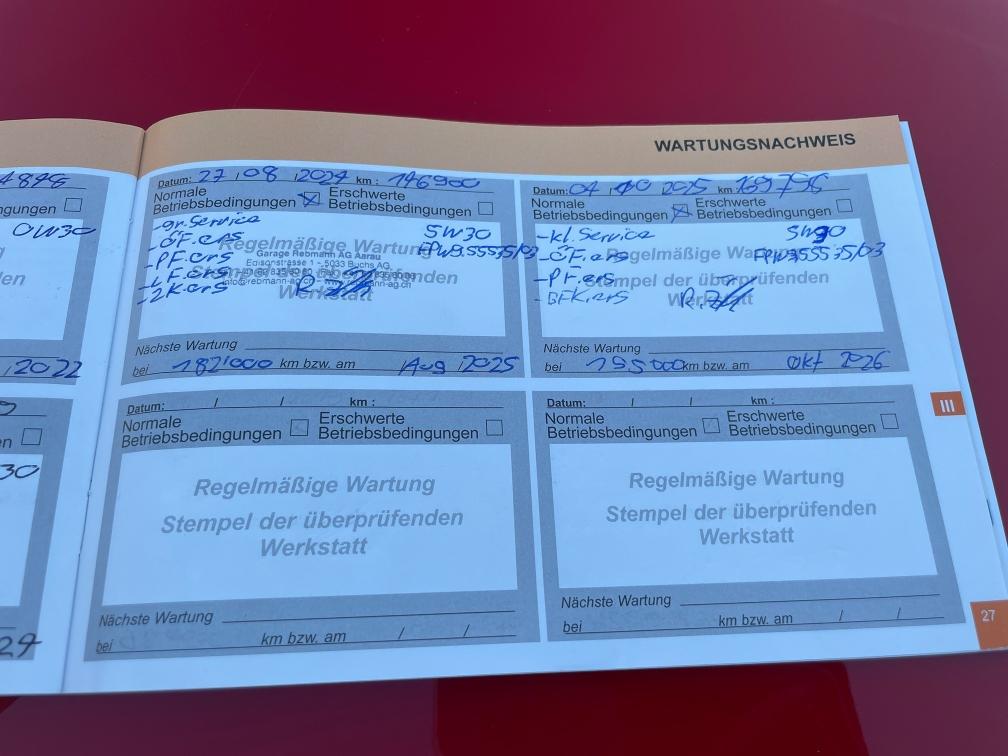 WARTUNGSNACHWEIS
4898
ngungen
0W30
ng
en
2022
n
30
Datum: 27 / 08 / 2024 km: 146900
Normale Betriebsbedingungen Erschwerte Betriebsbedingungen
-gr. Service 5W30
-ÖF. ers FPW9.55535/03
Regelmäßige Wartung
-PF. ers Garage Rebmann AG Aarau
Edisonstrasse 1 - 5033 Buchs AG
-LF. ers
-ZK. ers
Nächste Wartung
bei 182'000 km bzw. am Aug 2025
Datum: 04 / 10 2025 km: 169796
Normale Betriebsbedingungen Erschwerte Betriebsbedingungen
-kl. Service 5W30
-ÖF. ers Regelmäßige Wartung
-PF. ers Stempel der überprüfenden
-BFK. ers Werkstatt
Nächste Wartung
bei 195000 km bzw. am Okt 2026
Datum: / / km :
Normale Betriebsbedingungen Erschwerte Betriebsbedingungen
Regelmäßige Wartung
Stempel der überprüfenden
Werkstatt
Nächste Wartung
bei km bzw. am / /
Datum: / / km :
Normale Betriebsbedingungen Erschwerte Betriebsbedingungen
Regelmäßige Wartung
Stempel der überprüfenden
Werkstatt
Nächste Wartung
bei km bzw. am / /
III
27